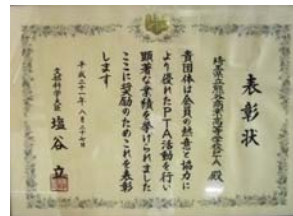 表彰状
埼玉県立熊谷商業高等学校PTA 殿
貴団体は会員の熱意と協力に
より優れたPTA活動を行い
顕著な業績を挙げられました
ここに奨励のためこれを表彰
します
平成二十一年八月二十一日
文部科学大臣 塩谷 立